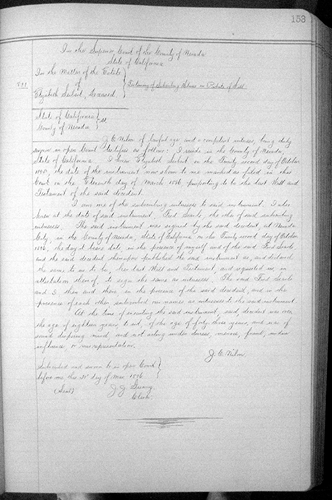 153
In the Superior Court of the County of Nevada
State of California
In the Matter of the Estate
of
Elizabeth Deceased.
Testimony of Subscribing Witness on Probate of Will
State of California
County of Nevada ss
J. C. of lawful age and a competent witness, being duly
sworn in open Court testifies as follows: I reside in the County of Nevada,
State of California. I knew Elizabeth on the Twenty second day of October
the date of the instrument now shown to me marked as filed in this
Court on the day of March purporting to be the last Will and
Testament of the said decedent.
I am one of the subscribing witnesses to said instrument. I also
knew at the date of said instrument, Fred Searls, the other of said subscribing
witnesses. The said instrument was signed by the said decedent, at Nevada
City, in the County of Nevada, State of California, on the Twenty second day of October
the day it bears date, in the presence of myself and of the said Fred Searls
and the said decedent thereupon published the said instrument as, and declared
the same to us to be, her last Will and Testament, and requested us in
attestation thereof, to sign the same as witnesses. The said Fred Searls
and I, then and there in the presence of the said decedent, and in the
presence of each other subscribed our names as witnesses to the said instrument.
At the time of executing the said instrument, said decedent was over
the age of eighteen years, to wit, of the age of forty three years, and was of
sound disposing mind, and not acting under duress, menace, fraud, undue
influence or misrepresentation.
J. C.
Subscribed and sworn to in open Court
before me this day of
(Seal)
Clerk.